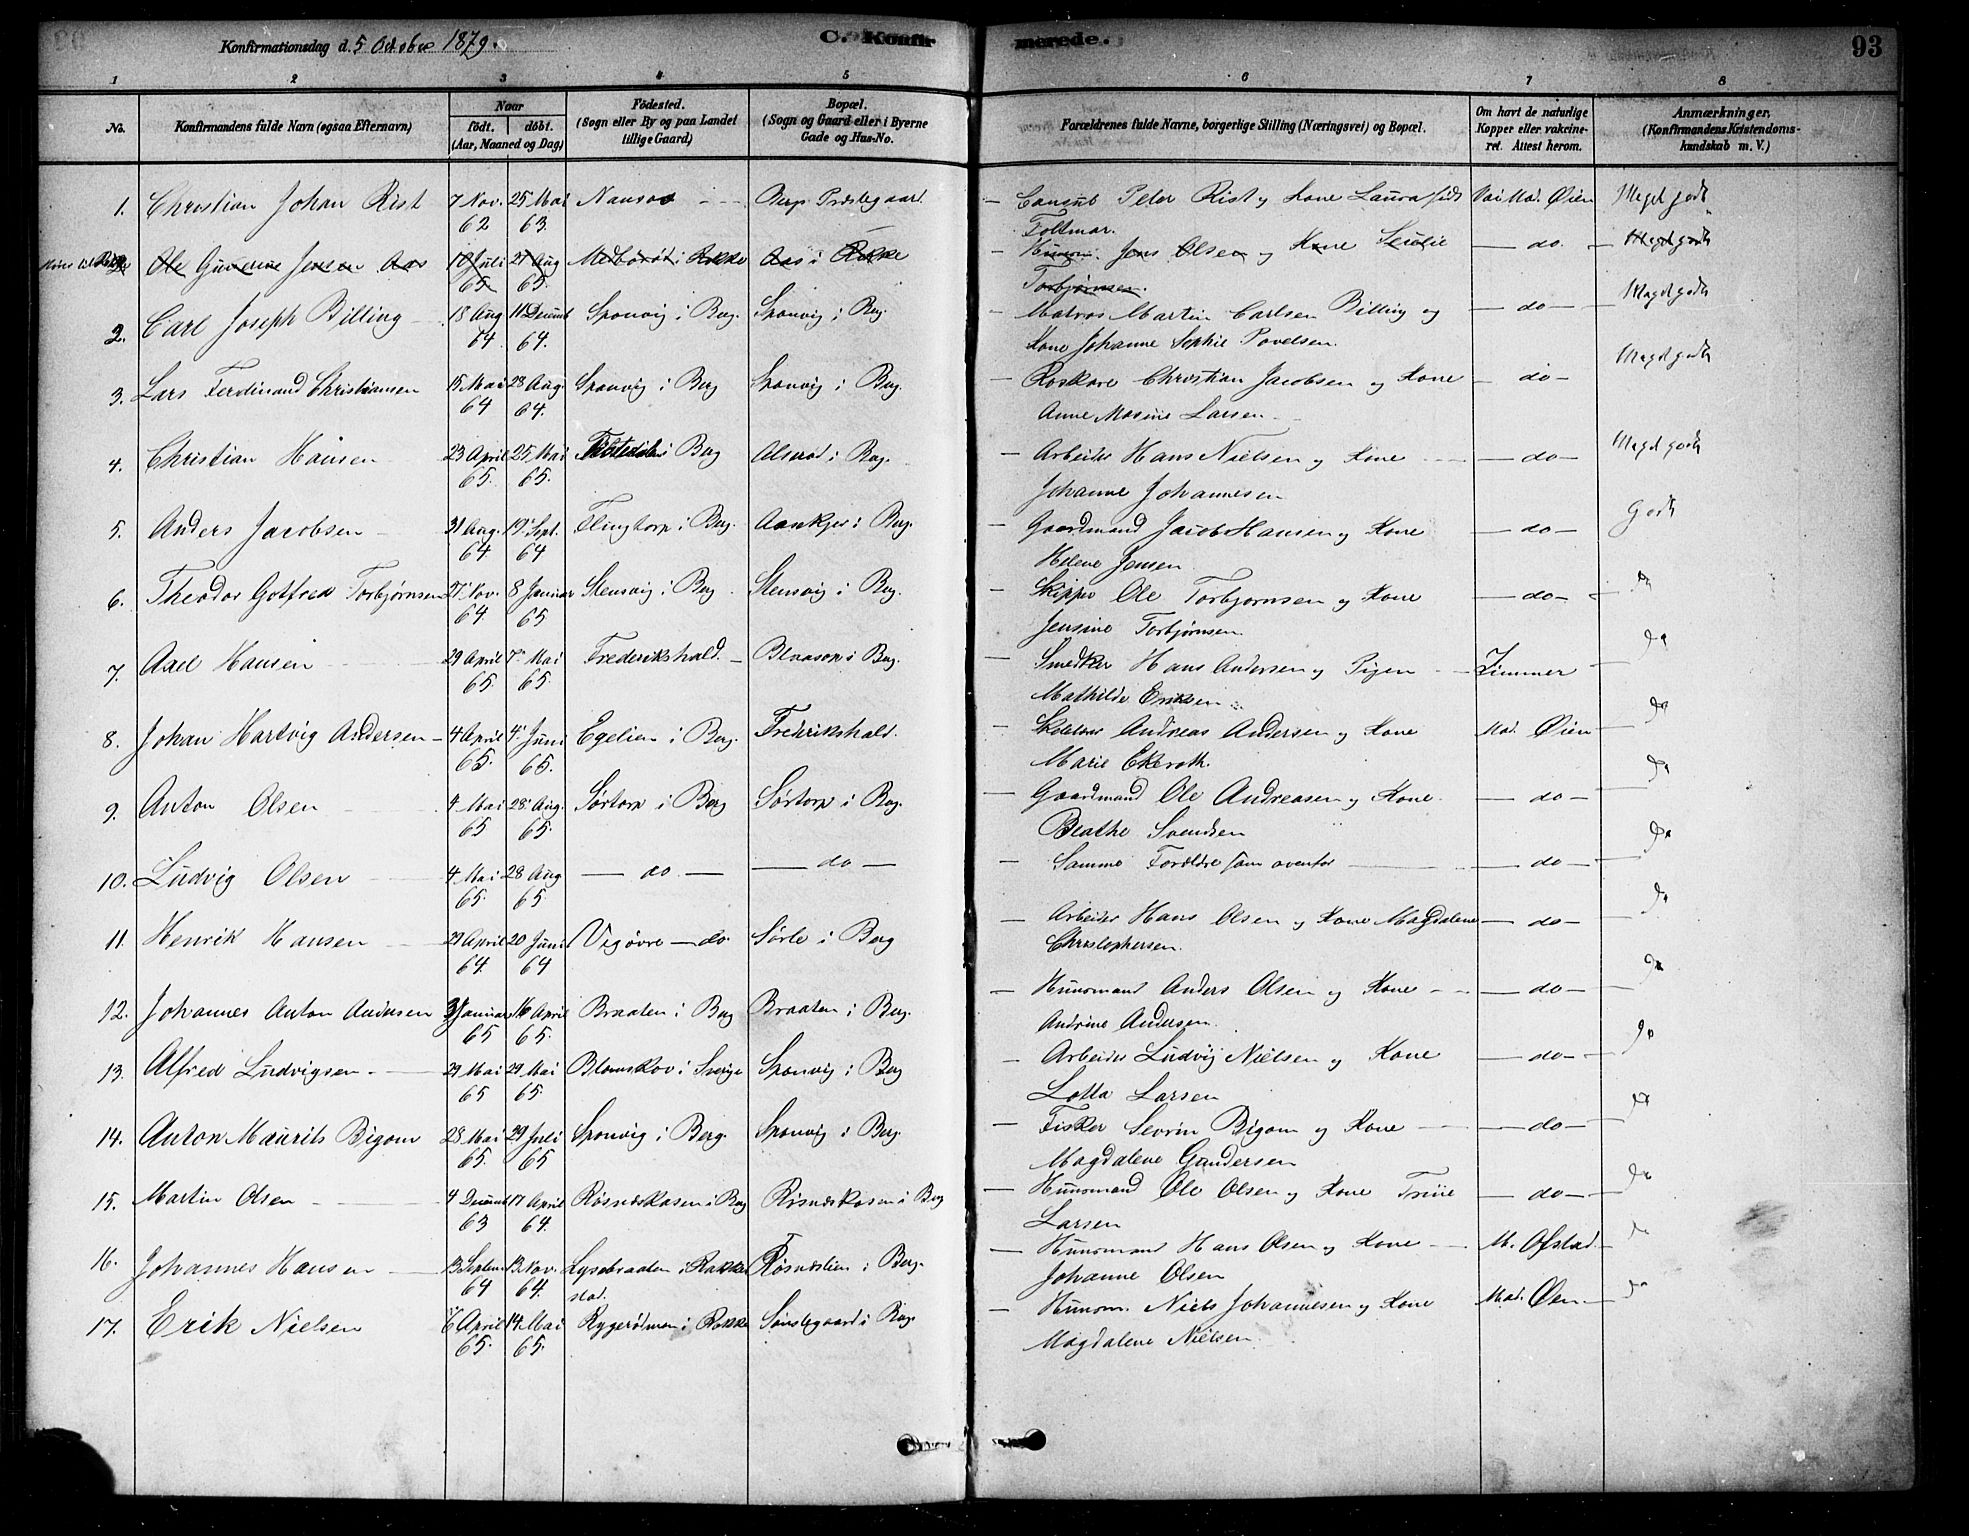 Konfirmationsdag d. 5 October 1879.
C. Konfirmerede.
93
1 2 3 4 5 6 7 8
No.
Konfirmandens fulde Navn (ogsaa Efternavn)
Naar
født. døbt.
(Aar, Maaned og Dag)
Födested.
(Sogn eller By og paa Landet
tillige Gaard)
Bopæl.
(Sogn og Gaard eller i Byerne
Gade og Hus-No.
Forældrenes fulde Navne, borgerlige Stilling (Næringsvei) og Bopæl.
Om havt de naturlige
Kopper eller vakcine-
ret. Attest herom.
Anmærkninger,
(Konfirmandens Kristendoms-
kundskab m. V.)
1. Christian Johan Rist 7 Nov. 62 25 Mai 63. Præstegaard — Peter Rist og Kone Laura Øien Meget godt
Foltmar.
Ole Jensen Aas 10 Juli 65 27 Aug 65. i Rokke Aas i Rokke — Husm. Jens Olsen og Kone — do. — Meget godt
Torbjørnsen.
2. Carl Joseph Billing 18 Aug 64 11 Decemb 64. Sponvig i Berg. Sponvig i Berg — Matros Martin Carlsen Billing og — do — Meget godt
Kone Johanne Sophie Povelsen.
3. Lars Ferdinand Christiansen 15 Mai 64 28 Aug. 64. Sponvig i Berg Sponvig i Berg. — Christian Jacobsen og Kone — do — Meget godt
Anne Larsen
4. Christian Hansen 23 April 65. 25 Mai 65. i Berg i Berg. — Arbeider Hans Nielsen og Kone — do — Meget godt
Johanne Johannesen
5. Anders Jacobsen 31 Aug. 64. 19 Sept. 64 i Berg. i Berg. — Gaardmand Jacob Hansen og Kone — do — Godt
Helene Jensen.
6. Theodor Gotfred Torbjørnsen 27 Nov. 64. 8 Januar 65 Stensvig i Berg Stensvig i Berg. — Skipper Ole Torbjørnsen og Kone — do — do
Jensine Torbjørnsen.
7. Axel Hansen 29 April 65. 7 Mai 65. Frederikshald. — i Berg. — Hans Andersen og Pigen — Zimmer — do
Mathilde Eriksen
8. Johan Hartvig Andersen — 4 April 65. 4 Juni 65. i Berg. Frederikshald. — Andreas Andersen og Kone Mad. Øien — do
Marie Ekeroth.
9. Anton Olsen 4 Mai 65 28 Aug. 65. Sørtorp i Berg Sørtorp i Berg. — Gaardmand Ole Andreasen og Kone — do — do
Beathe Svendsen
10. Ludvig Olsen 4 Mai 65. 28 Aug 65. — do — — do — — Samme Forældre som ovenfor — do — do
11. Henrik Hansen 29 April 64. 20 Juni 64 — do Sørle i Berg — Arbeider Hans Olsen og Kone Magdalene — do — do
Christophersen.
12. Johannes Anton Andersen 31 Januar 65 16 April 65. Braaten i Berg Braaten i Berg. — Husmand Anders Olsen og Kone — do — do
Andrine Andersen.
13. Alfred Ludvigsen 29 Mai 65 29 Mai 65. Blomskov i Sverige Sponvig i Berg — Arbeider Ludvig Nielsen og Kone — do — do
Lotta Larsen
14. Anton Maurits Bigom 28 Mai 65. 29 Juli 65 Sponvig i Berg. Sponvig i Berg. — Fisker Sevrin Bigom og Kone — do — do
Magdalene Gundersen
15. Martin Olsen 4 Decemb 63 17 April 64. Røsneskasen i Berg Røsneskasen i Berg — Husmand Ole Olsen og Kone Trine — do — do
Larsen
16. Johannes Hansen 13 Septem 64 13 Nov. 64. Lysebraaten i Rokke Røsneslien i Berg. — Husmand Hans Olsen og Kone — M. Ofstad — do
Johanne Olsen
17. Erik Nielsen 6 April 65. 14 Mai 65. i Rokke i Berg — Husm. Niels Johannesen og Kone Mad. Øien — do
Magdalene Nielsen.